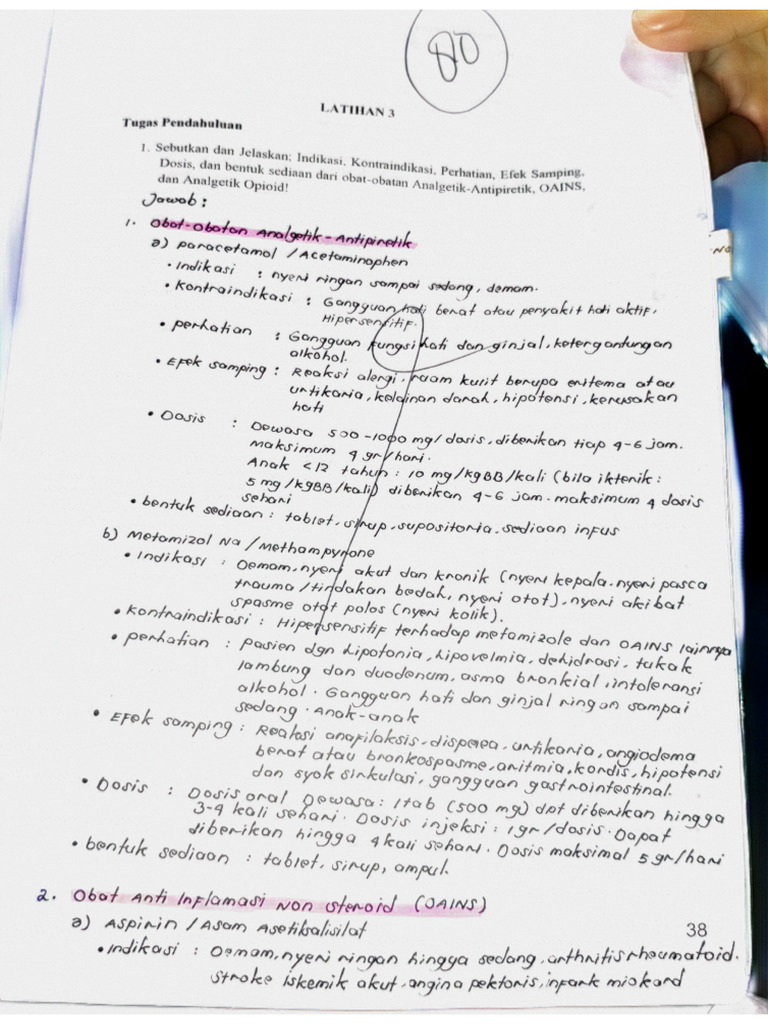 80
LATIHAN 3
Tugas Pendahuluan
1. Sebutkan dan Jelaskan; Indikasi, Kontraindikasi, Perhatian, Efek Samping,
Dosis, dan bentuk sediaan dari obat-obatan Analgetik-Antipiretik, OAINS,
dan Analgetik Opioid!
Jawab :
1. Obat-obatan Analgetik-Antipiretik
a) paracetamol / Acetaminophen
• Indikasi : nyeri ringan sampai sedang, demam.
• Kontraindikasi : Gangguan hati berat atau penyakit hati aktif,
Hipersensitif.
• perhatian : Gangguan fungsi hati dan ginjal, ketergantungan
alkohol.
• Efek samping : Reaksi alergi, ruam kulit berupa eritema atau
urtikaria, kelainan darah, hipotensi, kerusakan
hati
• Dosis : Dewasa 500-1000 mg/dosis, diberikan tiap 4-6 jam.
Maksimum 4 gr/hari.
Anak <12 tahun : 10 mg/kgBB/kali (bila ikterik :
5 mg/kgBB/kali) diberikan 4-6 jam. maksimum 4 dosis
sehari
• bentuk sediaan : tablet, sirup, supositoria, sediaan infus
b) Metamizol Na / Methampyrone
• Indikasi : Demam, nyeri akut dan kronik (nyeri kepala, nyeri pasca
trauma / tindakan bedah, nyeri otot), nyeri akibat
spasme otot polos (nyeri kolik).
• Kontraindikasi : Hipersensitif terhadap metamizole dan OAINS lainnya
• perhatian : pasien dgn hipotonia, hipovelmia, dehidrasi, tukak
lambung dan duodenum, asma bronkial, intoleransi
alkohol. Gangguan hati dan ginjal ringan sampai
sedang. Anak-anak
• Efek samping : Reaksi anafilaksis, dispnea, urtikaria, angiodema
berat atau bronkospasme, aritmia, kordis, hipotensi
dan syok sirkulasi, gangguan gastrointestinal.
• Dosis : Dosis oral Dewasa : 1 tab (500 mg) dpt diberikan hingga
3-4 kali sehari. Dosis injeksi : 1 gr/dosis. Dapat
diberikan hingga 4 kali sehari. Dosis maksimal 5 gr/hari
• bentuk sediaan : tablet, sirup, ampul.
2. Obat Anti Inflamasi Non Steroid (OAINS)
a) Aspirin / Asam Asetilsalisilat
38
• Indikasi : Demam, nyeri ringan hingga sedang, arthritis rheumatoid.
Stroke iskemik akut, angina pektoris, infark miokard